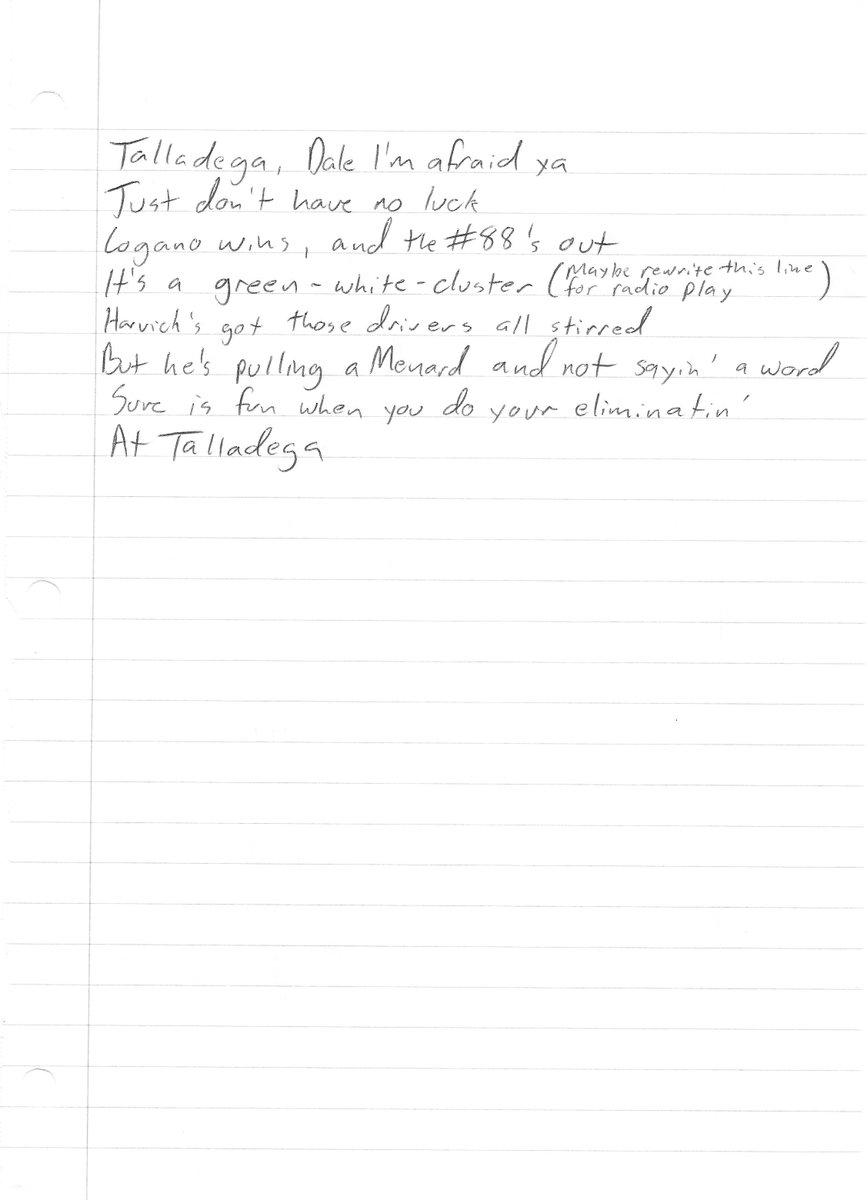 Talladega, Dale I'm afraid ya
Just don't have no luck
Logano wins, and the #88's out
It's a green-white-cluster (Maybe rewrite this line for radio play)
Harvick's got those drivers all stirred
But he's pulling a Menard and not sayin' a word
Sure is fun when you do your eliminatin'
At Talladega